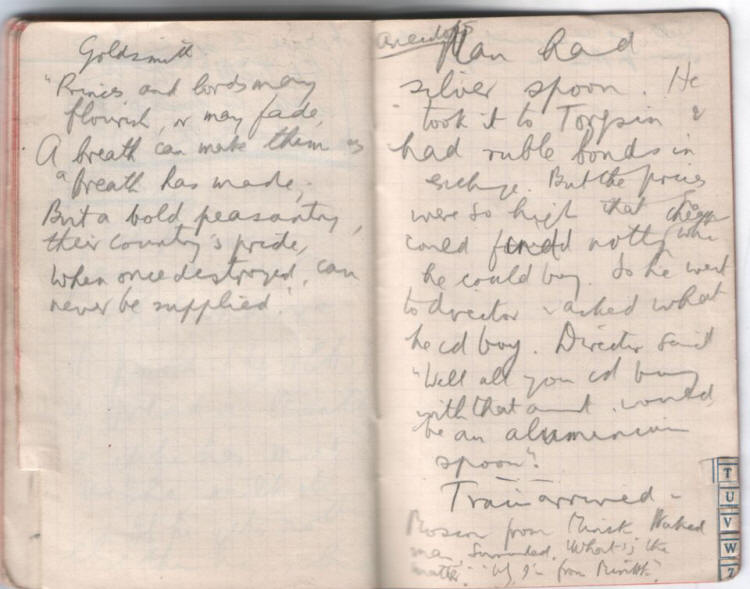 Goldsmith
"Princes and lords may
flourish, or may fade,
A breath can make them as
a breath has made;
But a bold peasantry,
their country's pride,
When once destroyed, can
never be supplied."
Anecdote
Man had
silver spoon. He
took it to Torgsin &
had ruble bonds in
exchge. But the prices
were so high that
could find notg
he could buy. So he went
to director & asked what
he cd buy. Director said
"Well all you cd buy
with that amt. would
be an aluminium
spoon".
Train arrived -
Moscow from Minsk. Naked
man, surrounded. "What is the
matter." "I'm from Minsk".
T
U
V
W